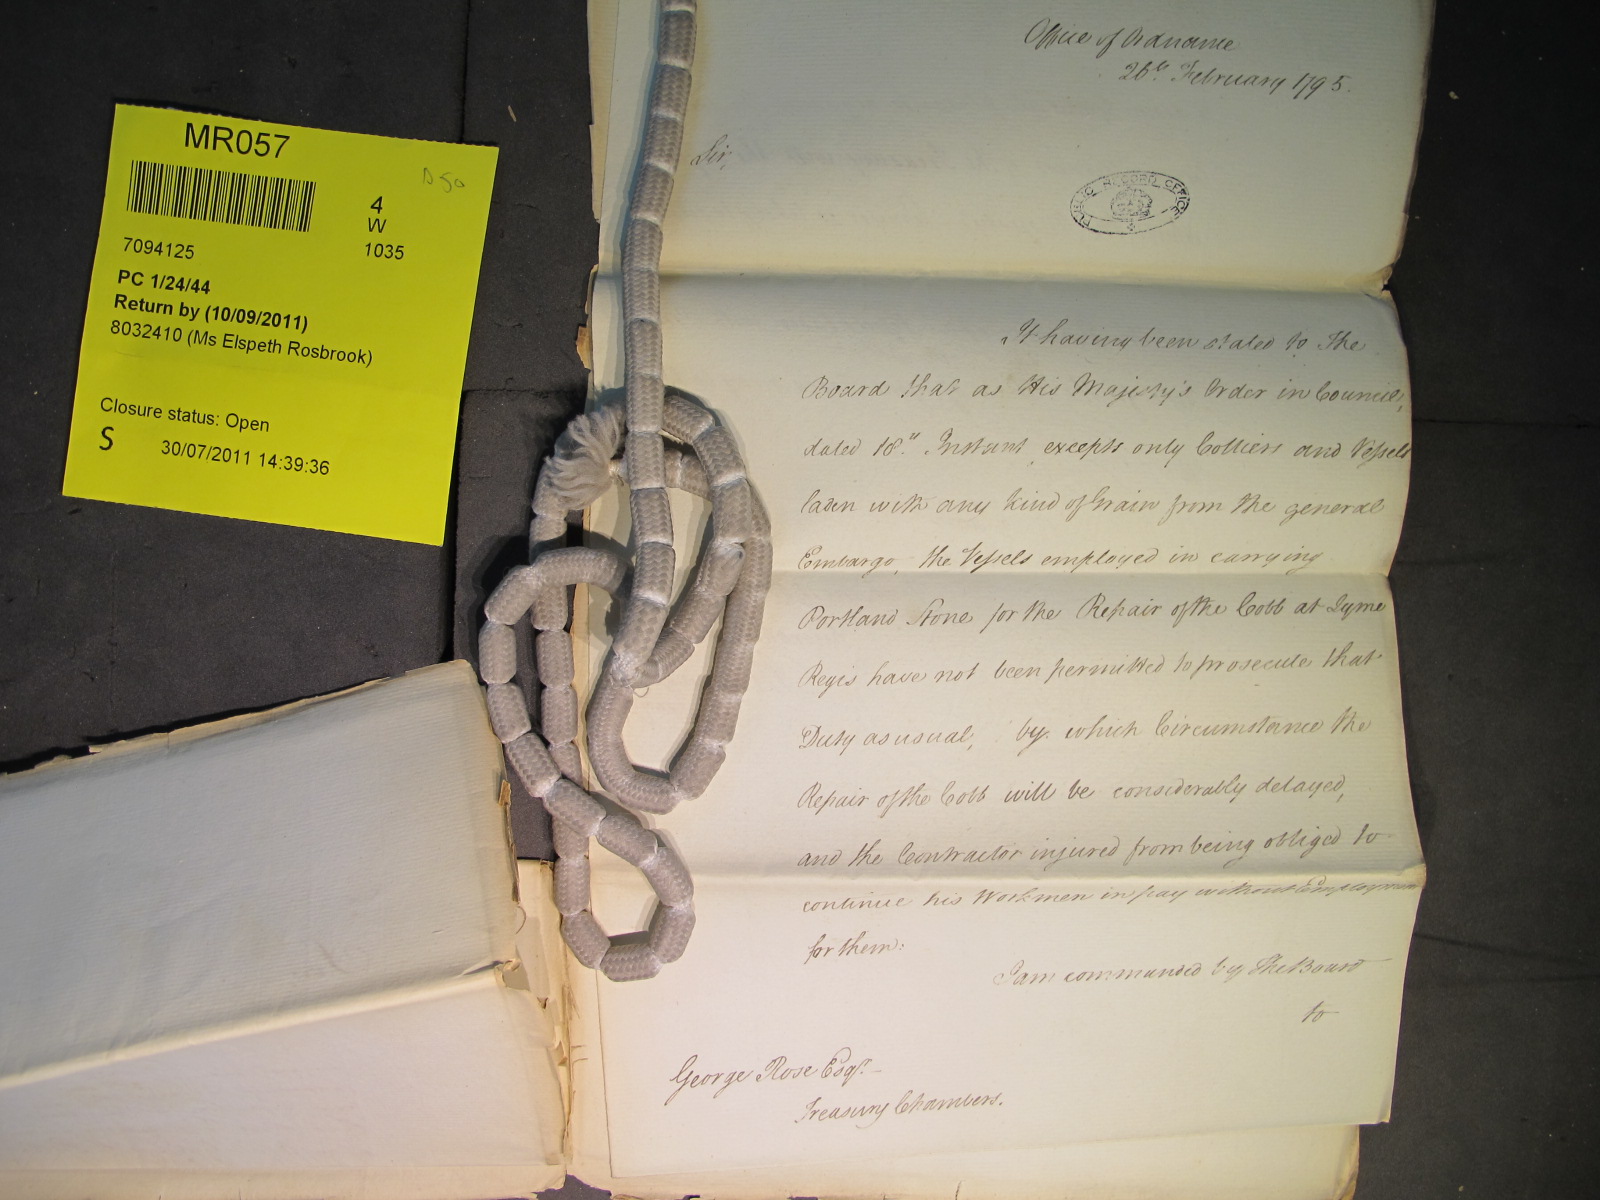 MR057
D 50
4
W
7094125
1035
PC 1/24/44
Return by (10/09/2011)
8032410 (Ms Elspeth Rosbrook)
Closure status: Open
S
30/07/2011 14:39:36
Office of Ordnance
26th February 1795.
Sir,
PUBLIC RECORD OFFICE
It having been stated to The
Board that as His Majesty's Order in Council,
dated 18th Instant excepts only Colliers and Vessels
laden with any kind of Grain from the general
Embargo, the Vessels employed in carrying
Portland Stone for the Repair of the Cobb at Lyme
Regis have not been permitted to prosecute that
Duty as usual, by which Circumstance the
Repair of the Cobb will be considerably delayed,
and the Contractor injured from being obliged to
continue his Workmen in pay without Employment
for them:
I am commanded by The Board
to
George Rose Esqr.
Treasury Chambers.